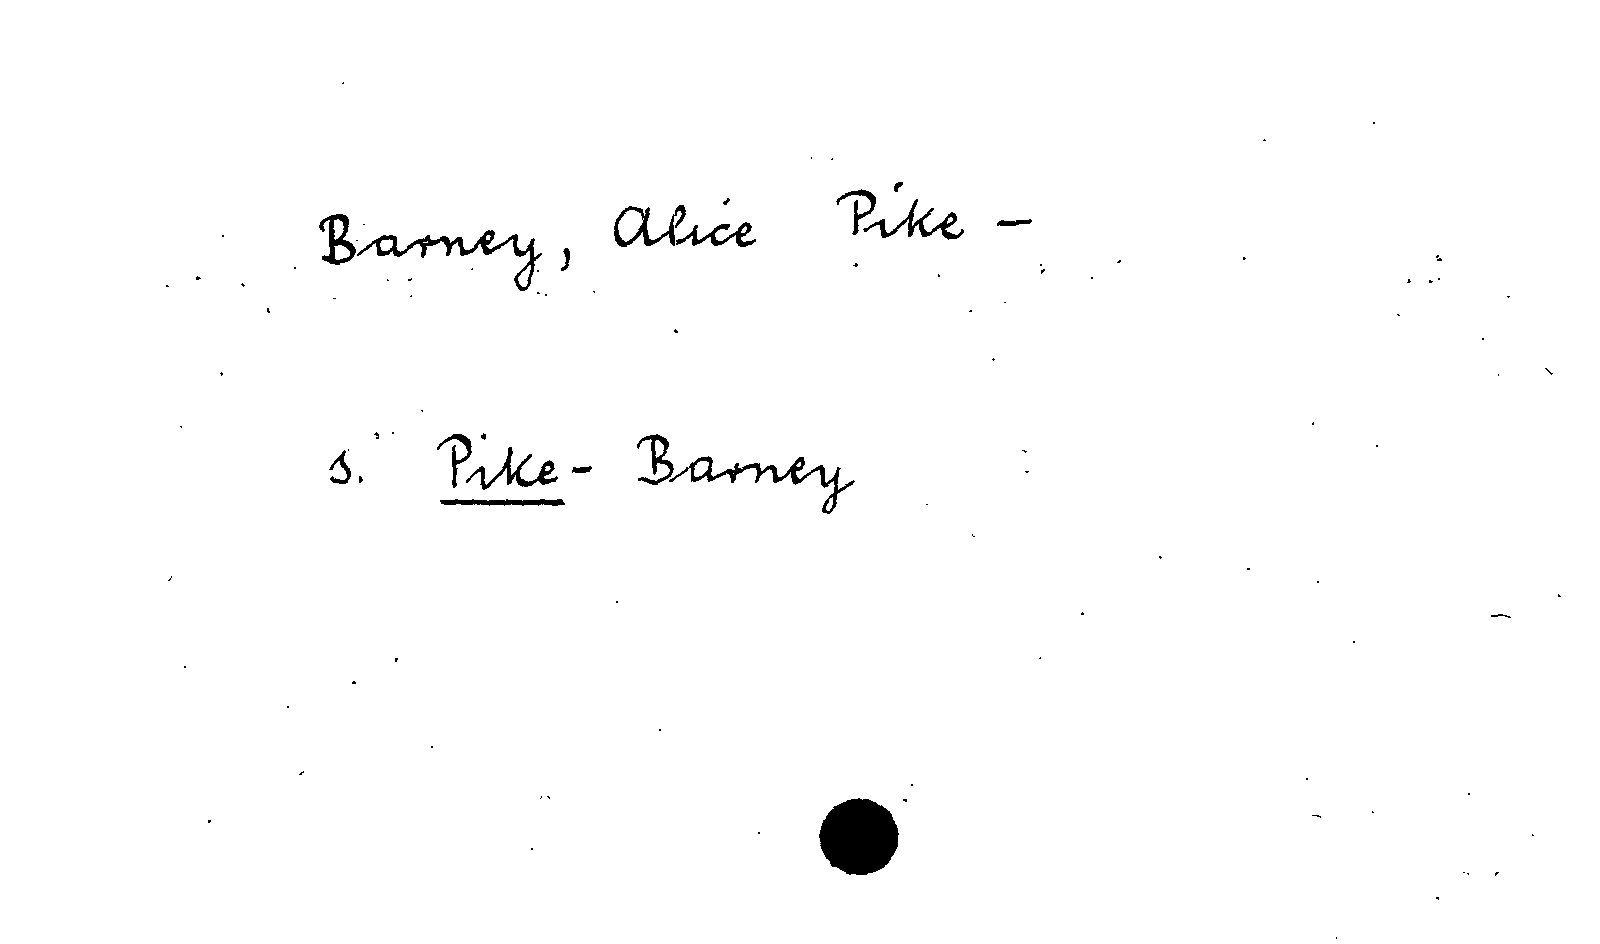 Barney, Alice Pike -
s. Pike - Barney